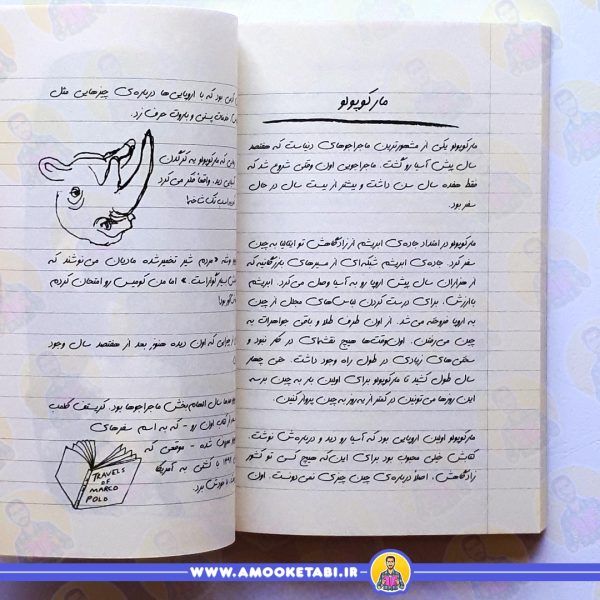 مارکوپولو
مارکوپولو یکی از مشهورترین ماجراجوهای دنیاست که هفتصد
سال پیش آسیا رو گشت. ماجراجویی اون وقتی شروع شد که
فقط هفده سال سن داشت و بیشتر از بیست سال در حال
سفر بود.
مارکوپولو در امتداد جاده‌ی ابریشم از زادگاهش تو ایتالیا به چین
سفر کرد. جاده‌ی ابریشم شبکه‌ای از مسیرهای بازرگانیه که
از هزاران سال پیش اروپا رو به آسیا وصل می‌کرد. ابریشم
باارزش، برای درست کردن لباس‌های مجلل از چین
به اروپا فروخته می‌شد. از اون طرف طلا و باقی جواهرات به
چین می‌رفتن. اون‌وقت‌ها هیچ نقشه‌ای در کار نبود و
سختی‌های زیادی در طول راه وجود داشت. حتی چهار
سال طول کشید تا مارکوپولو برای اولین بار به چین برسه.
این روزها می‌تونین در کمتر از یه روز به چین پرواز کنین.
مارکوپولو اولین اروپایی بود که آسیا رو دید و درباره‌ش نوشت.
کتابش خیلی محبوب بود برای این‌که هیچ کس تو کشور
زادگاهش، اصلاً درباره‌ی چین چیزی نمی‌دونست. اون
بود که با اروپایی‌ها درباره‌ی چیزهایی مثل
خدمات پستی و باروت حرف زد.
که مارکوپولو یه کرگدن
دید، واقعاً فکر می‌کرد
تک‌شاخه!
«مردم شیر تخمیرشده مادیان می‌نوشند که
بسیار گوارا است.» اما من کومیس رو امتحان کردم
که اون دیده هنوز بعد از هفتصد سال وجود
سال الهام‌بخش ماجراجوها بود. کریستف کلمب
کتاب اون رو - که به اسم سفرهای
شده - موقعی که
با کشتی به آمریکا
برد.
TRAVELS
OF
MARCO
POLO
WWW.AMOOKETABI.IR